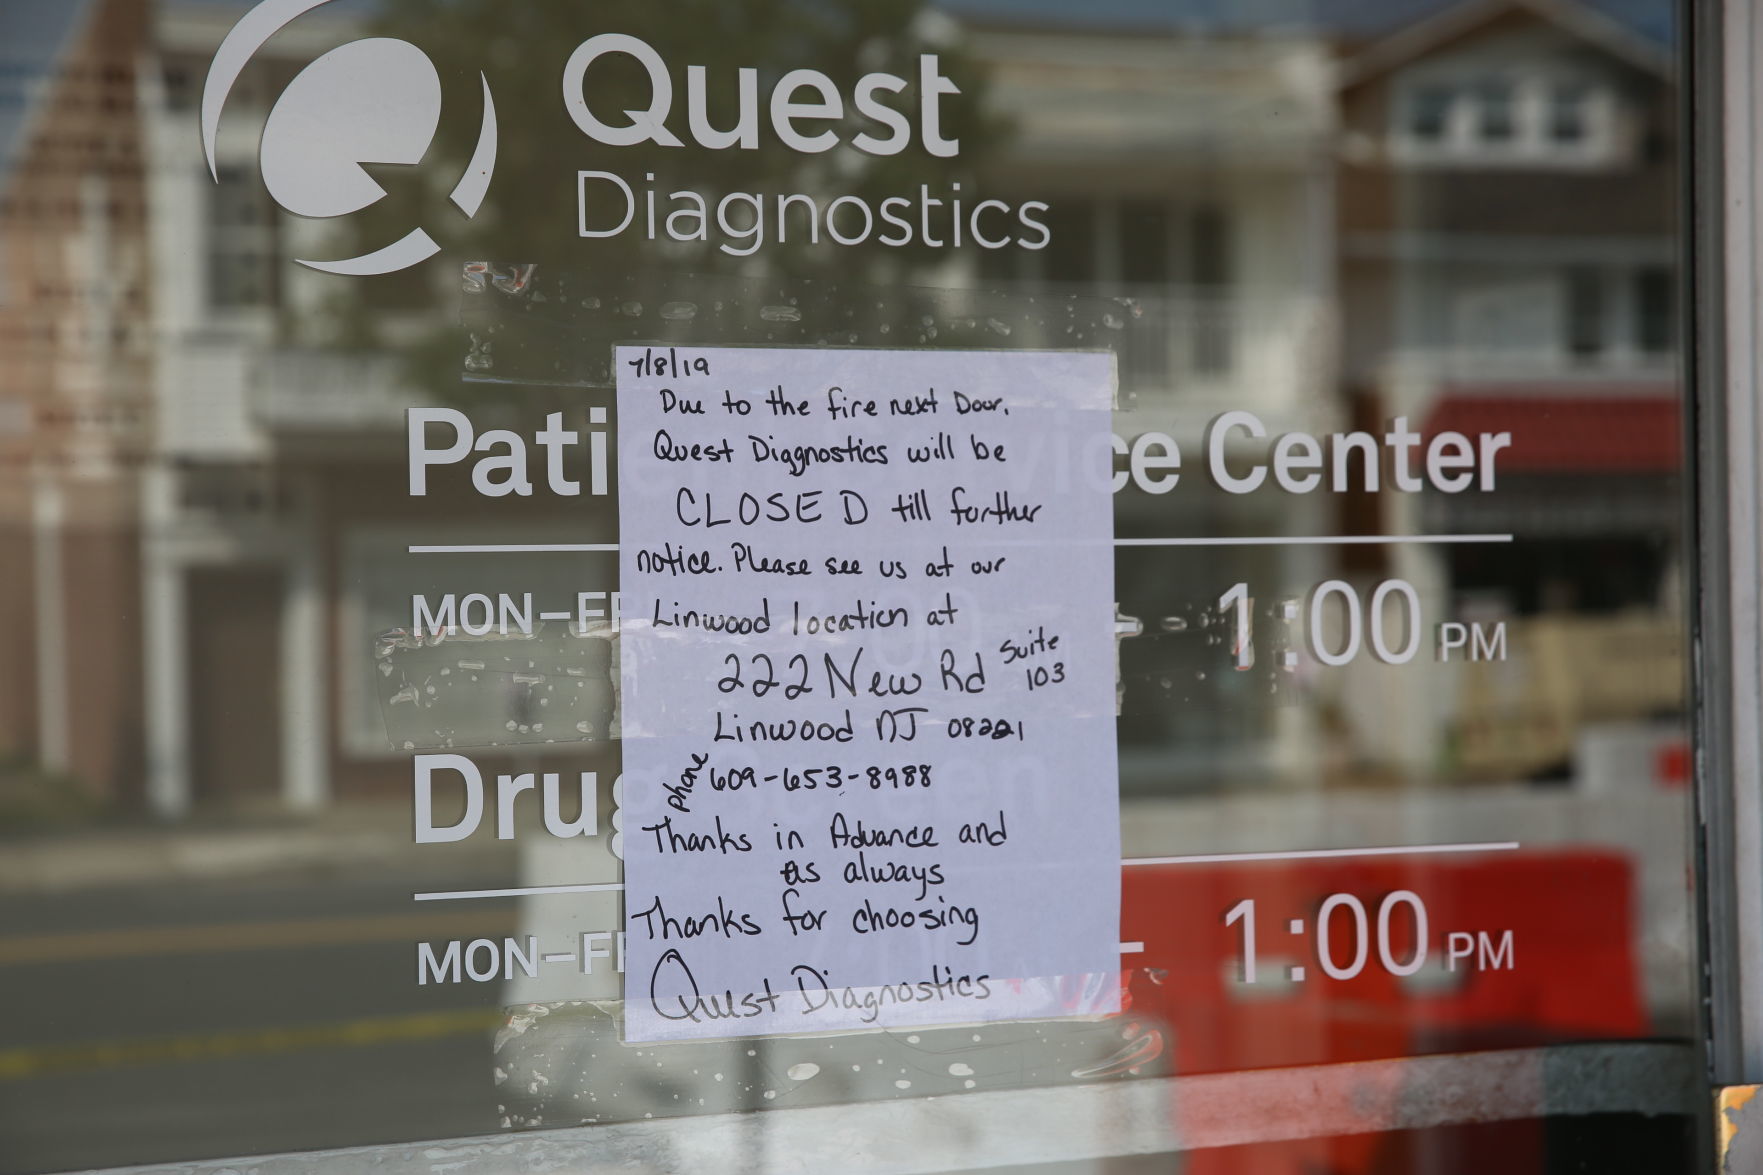 Quest
Diagnostics
7/8/19
Due to the fire next Door.
Quest Diagnostics will be
CLOSED till further
notice. Please see us at our
Linwood location at
222 New Rd Suite 103
Linwood NJ 08221
phone 609-653-8988
Thanks in Advance and
as always
Thanks for choosing
Quest Diagnostics
Pati ce Center
MON–F – 1:00 PM
Drug
MON–F – 1:00 PM